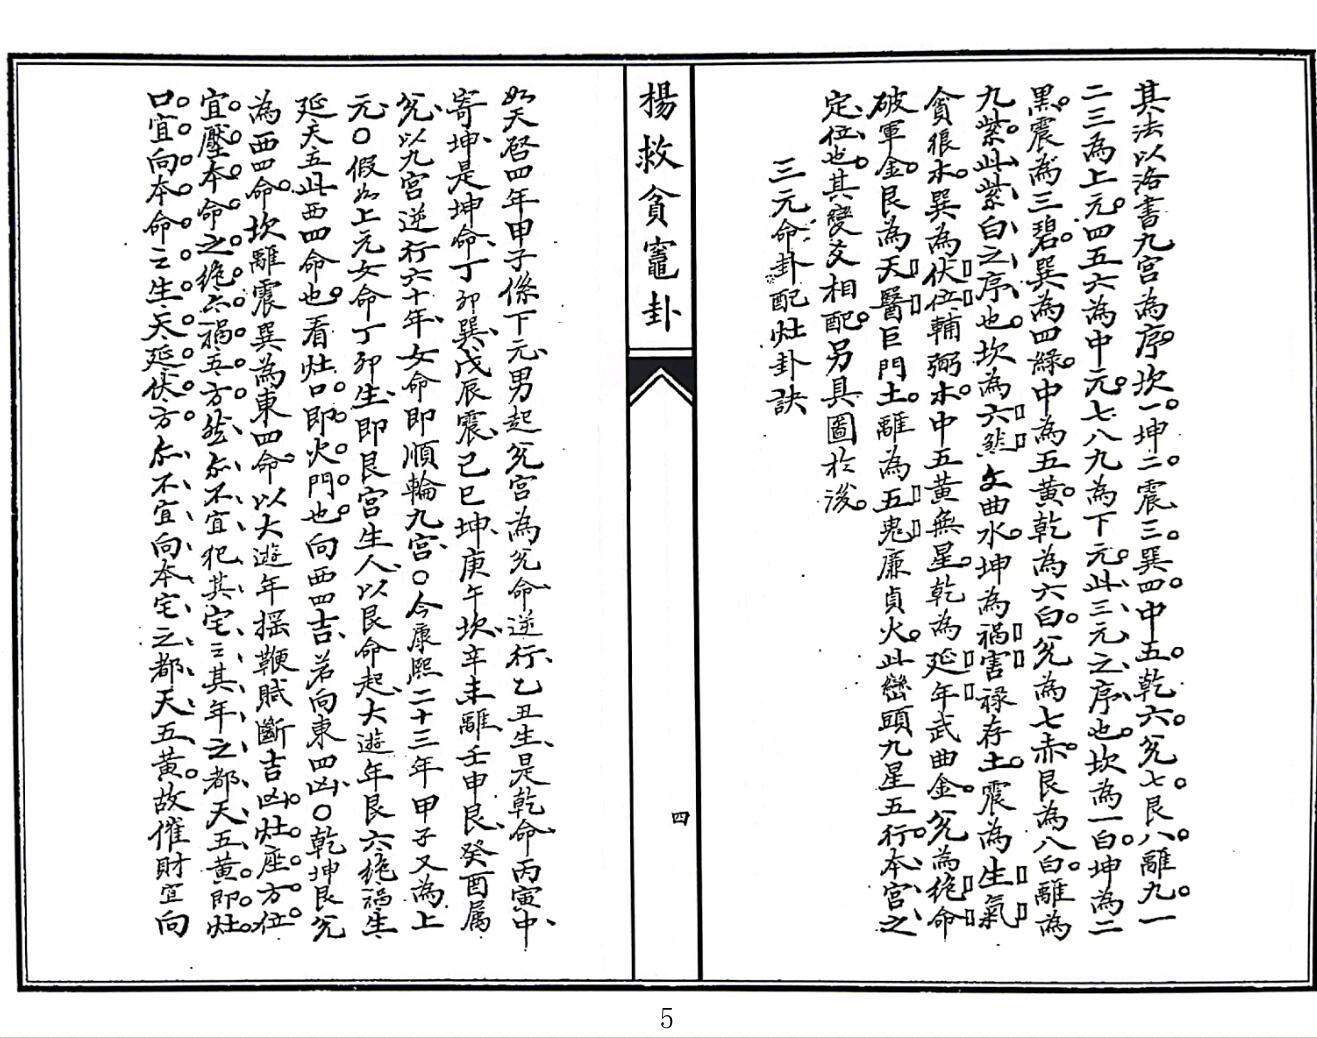 其法以洛書九宫為序。坎一。坤二。震三。巽四。中五。乾六。兊七。艮八。離九。一
二三為上元。四五六為中元。七八九為下元。此三元之序也。坎為一白。坤為二
黑。震為三碧。巽為四緑。中為五黄。乾為六白。兊為七赤。艮為八白。離為
九紫。此紫白之序也。坎為六煞文曲水。坤為禍害禄存土。震為生氣
貪狼木。巽為伏位輔弼木。中五黄無星。乾為延年武曲金。兊為絶命
破軍金。艮為天醫巨門土。離為五鬼廉貞火。此巒頭九星五行。本宫之
定位也。其變爻相配。另具圖於後。
三元命卦配灶卦訣
楊救貧竈卦
四
如天啓四年甲子係下元、男起兊宫為兊命、逆行、乙丑生、是乾命、丙寅中、
寄坤是坤命、丁卯巽、戊辰震、己巳坤、庚午坎、辛未離、壬申艮、癸酉属
兊、以九宫逆行六十年、女命即順輪九宫、○今康熙二十三年甲子又為上
元、○假如上元女命丁卯生、即艮宫生人、以艮命起、大遊年艮六絶禍生
延天五、此西四命也。看灶口。即火門也。向西四吉、若向東四凶、○乾坤艮兊
為西四命。坎離震巽為東四命。以大遊年摇鞭賦斷吉凶。灶座方位
宜壓本命之絶六禍五方。然亦不宜犯其宅三其年之都天五黄。即灶
口宜向本命之生天延伏方。亦不宜向本宅之都天五黄。故催財宜向
5